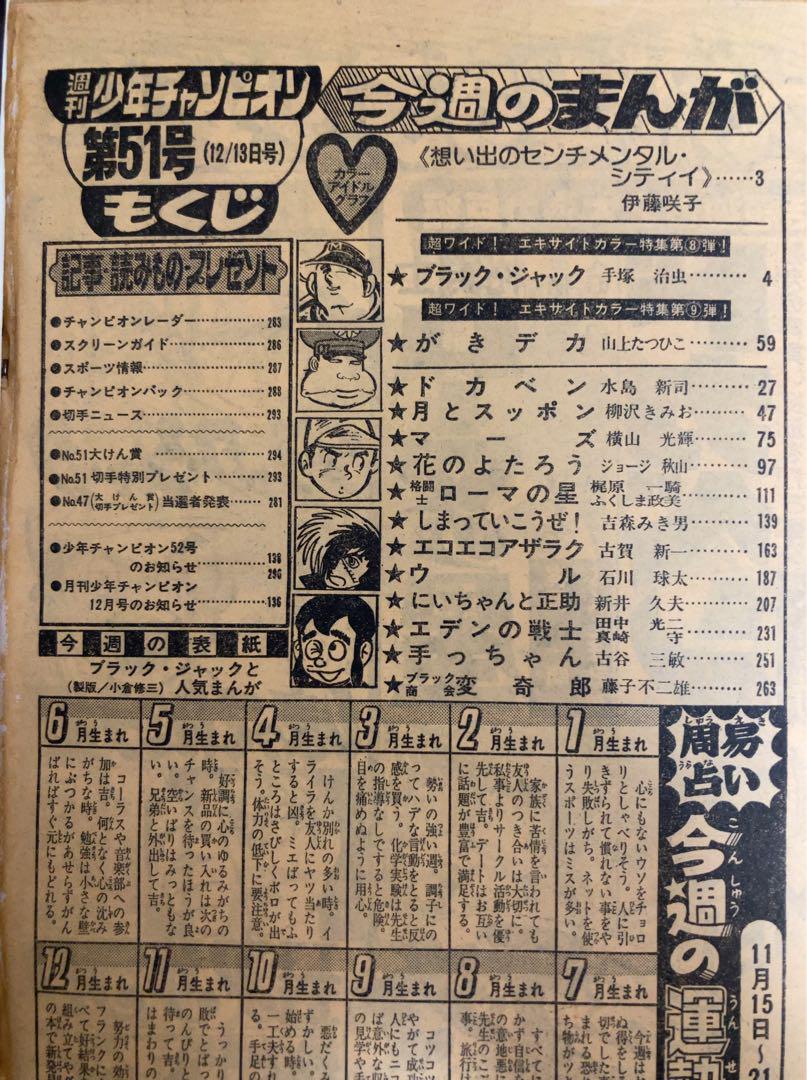 週刊少年チャンピオン
第51号(12/13日号)
もくじ
今週のまんが
カラー
アイドル
グラフ
《想い出のセンチメンタル・
シティイ》……3
伊藤咲子
超ワイド! エキサイトカラー特集第⑧弾!
★ブラック・ジャック 手塚 治虫………4
超ワイド! エキサイトカラー特集第⑨弾!
★がきデカ 山上たつひこ………59
★ドカベン 水島 新司………27
★月とスッポン 柳沢きみお………47
★マーズ 横山 光輝………75
★花のよたろう ジョージ秋山………97
★格闘士ローマの星 梶原 一騎 ふくしま政美………111
★しまっていこうぜ! 吉森みき男………139
★エコエコアザラク 古賀 新一………163
★ウル 石川 球太………187
★にいちゃんと正助 新井 久夫………207
★エデンの戦士 田中 光二 真崎 守………231
★手っちゃん 古谷 三敏………251
★ブラック商会変奇郎 藤子不二雄………263
記事・読みもの・プレゼント
●チャンピオンレーダー………283
●スクリーンガイド………286
●スポーツ情報………287
●チャンピオンパック………288
●切手ニュース………293
●No.51大けん賞………294
●No.51切手特別プレゼント………293
●No.47(大けん賞 切手プレゼント)当選者発表……281
●少年チャンピオン52号
のお知らせ………138
296
●月刊少年チャンピオン
12月号のお知らせ………136
今週の表紙
ブラック・ジャックと
(製版/小倉修三)人気まんが
周易占い
しゅうえき
うらない
今週の運勢
こんしゅう
うんせ
11月15日〜21
1月生まれ
心にもないウソをチョロ
リとしゃべりそう。人に引
きずられて慣れない事をや
り失敗しがち。ネットを使
うスポーツはミスが多い。
2月生まれ
家族に苦情を言われても
友人のつき合いは大切に。
私事よりサークル活動を優
先して吉。デートはお互い
に話題が豊富で満足する。
3月生まれ
勢いの強い週。調子にの
ってハデな言動をとると反
感を買う。化学実験は先生
の指導なしですると危険。
目を痛めぬように用心。
4月生まれ
けんか別れの多い時。イ
ライラを友人にヤツ当たり
すると凶。ミエばってもふ
ところはさびしくボロが出
そう。体力の低下に要注意。
5月生まれ
好調に心のゆるみがちの
時。新品の買い入れは次の
チャンスを待ったほうが良
い。空いばりはみっともな
い。兄弟と外出して吉。
6月生まれ
コーラスや音楽部への参
加は吉。何となく心の沈み
がちな時。勉強は小さな壁
にぶつかるがあせらずがん
ばればすぐ元にもどれる。
7月生まれ
今週は
ぬ得をし
切でした
まれる恐
ち物がツ
8月生まれ
すべてに
かず自信
の意地悪に
先生のご
事。旅行は
9月生まれ
コツコツ
やがて成功
人にもニコ
ば意外な収
の見学や手
10月生まれ
悪だくみ
ずかしい。
始める時。
一工夫すれ
る。手足の
11月生まれ
うっかり
敗でとばっ
のんびりと
待って吉。
はまわりの
12月生まれ
努力の効
べて好結果
フランクに
組み立てや
の本で新発